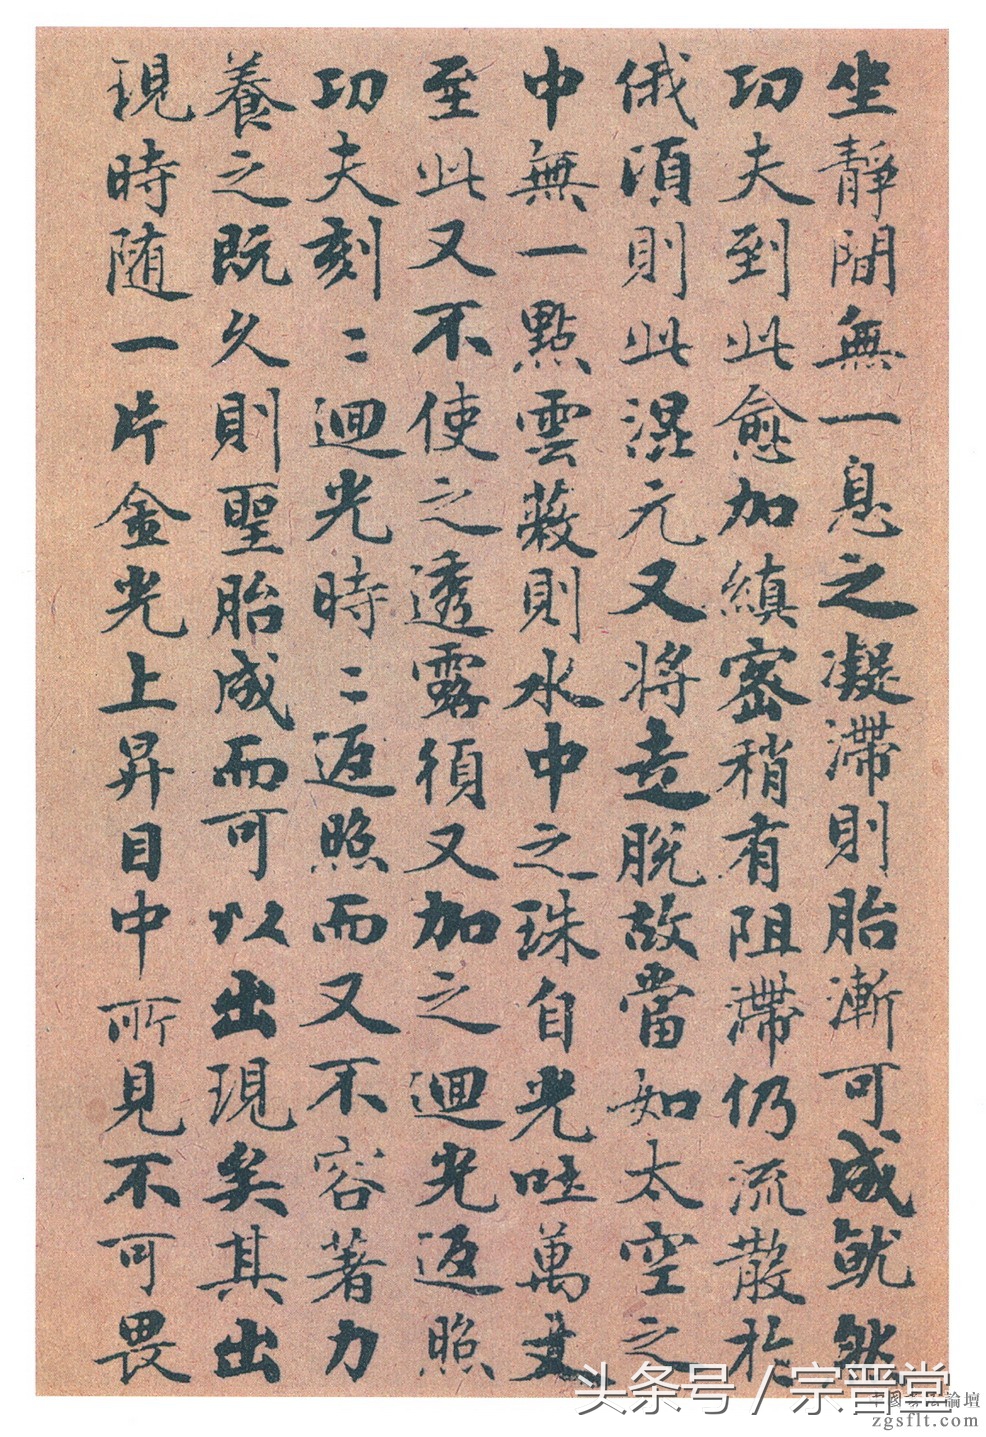 坐靜間無一息之凝滯則胎漸可成就然
功夫到此愈加縝密稍有阻滯仍流散於
俄須則此混元又將走脫故當如太空之
中無一點雲蔽則水中之珠自光吐萬丈
至此又不使之透露須又加之迴光返照
功夫刻〻迴光時〻返照而又不容著力
養之既久則聖胎成而可以出現矣其出
現時随一片金光上昇目中所見不可畏
头条号 / 宗晋堂
中國書法論壇
zgsflt.com